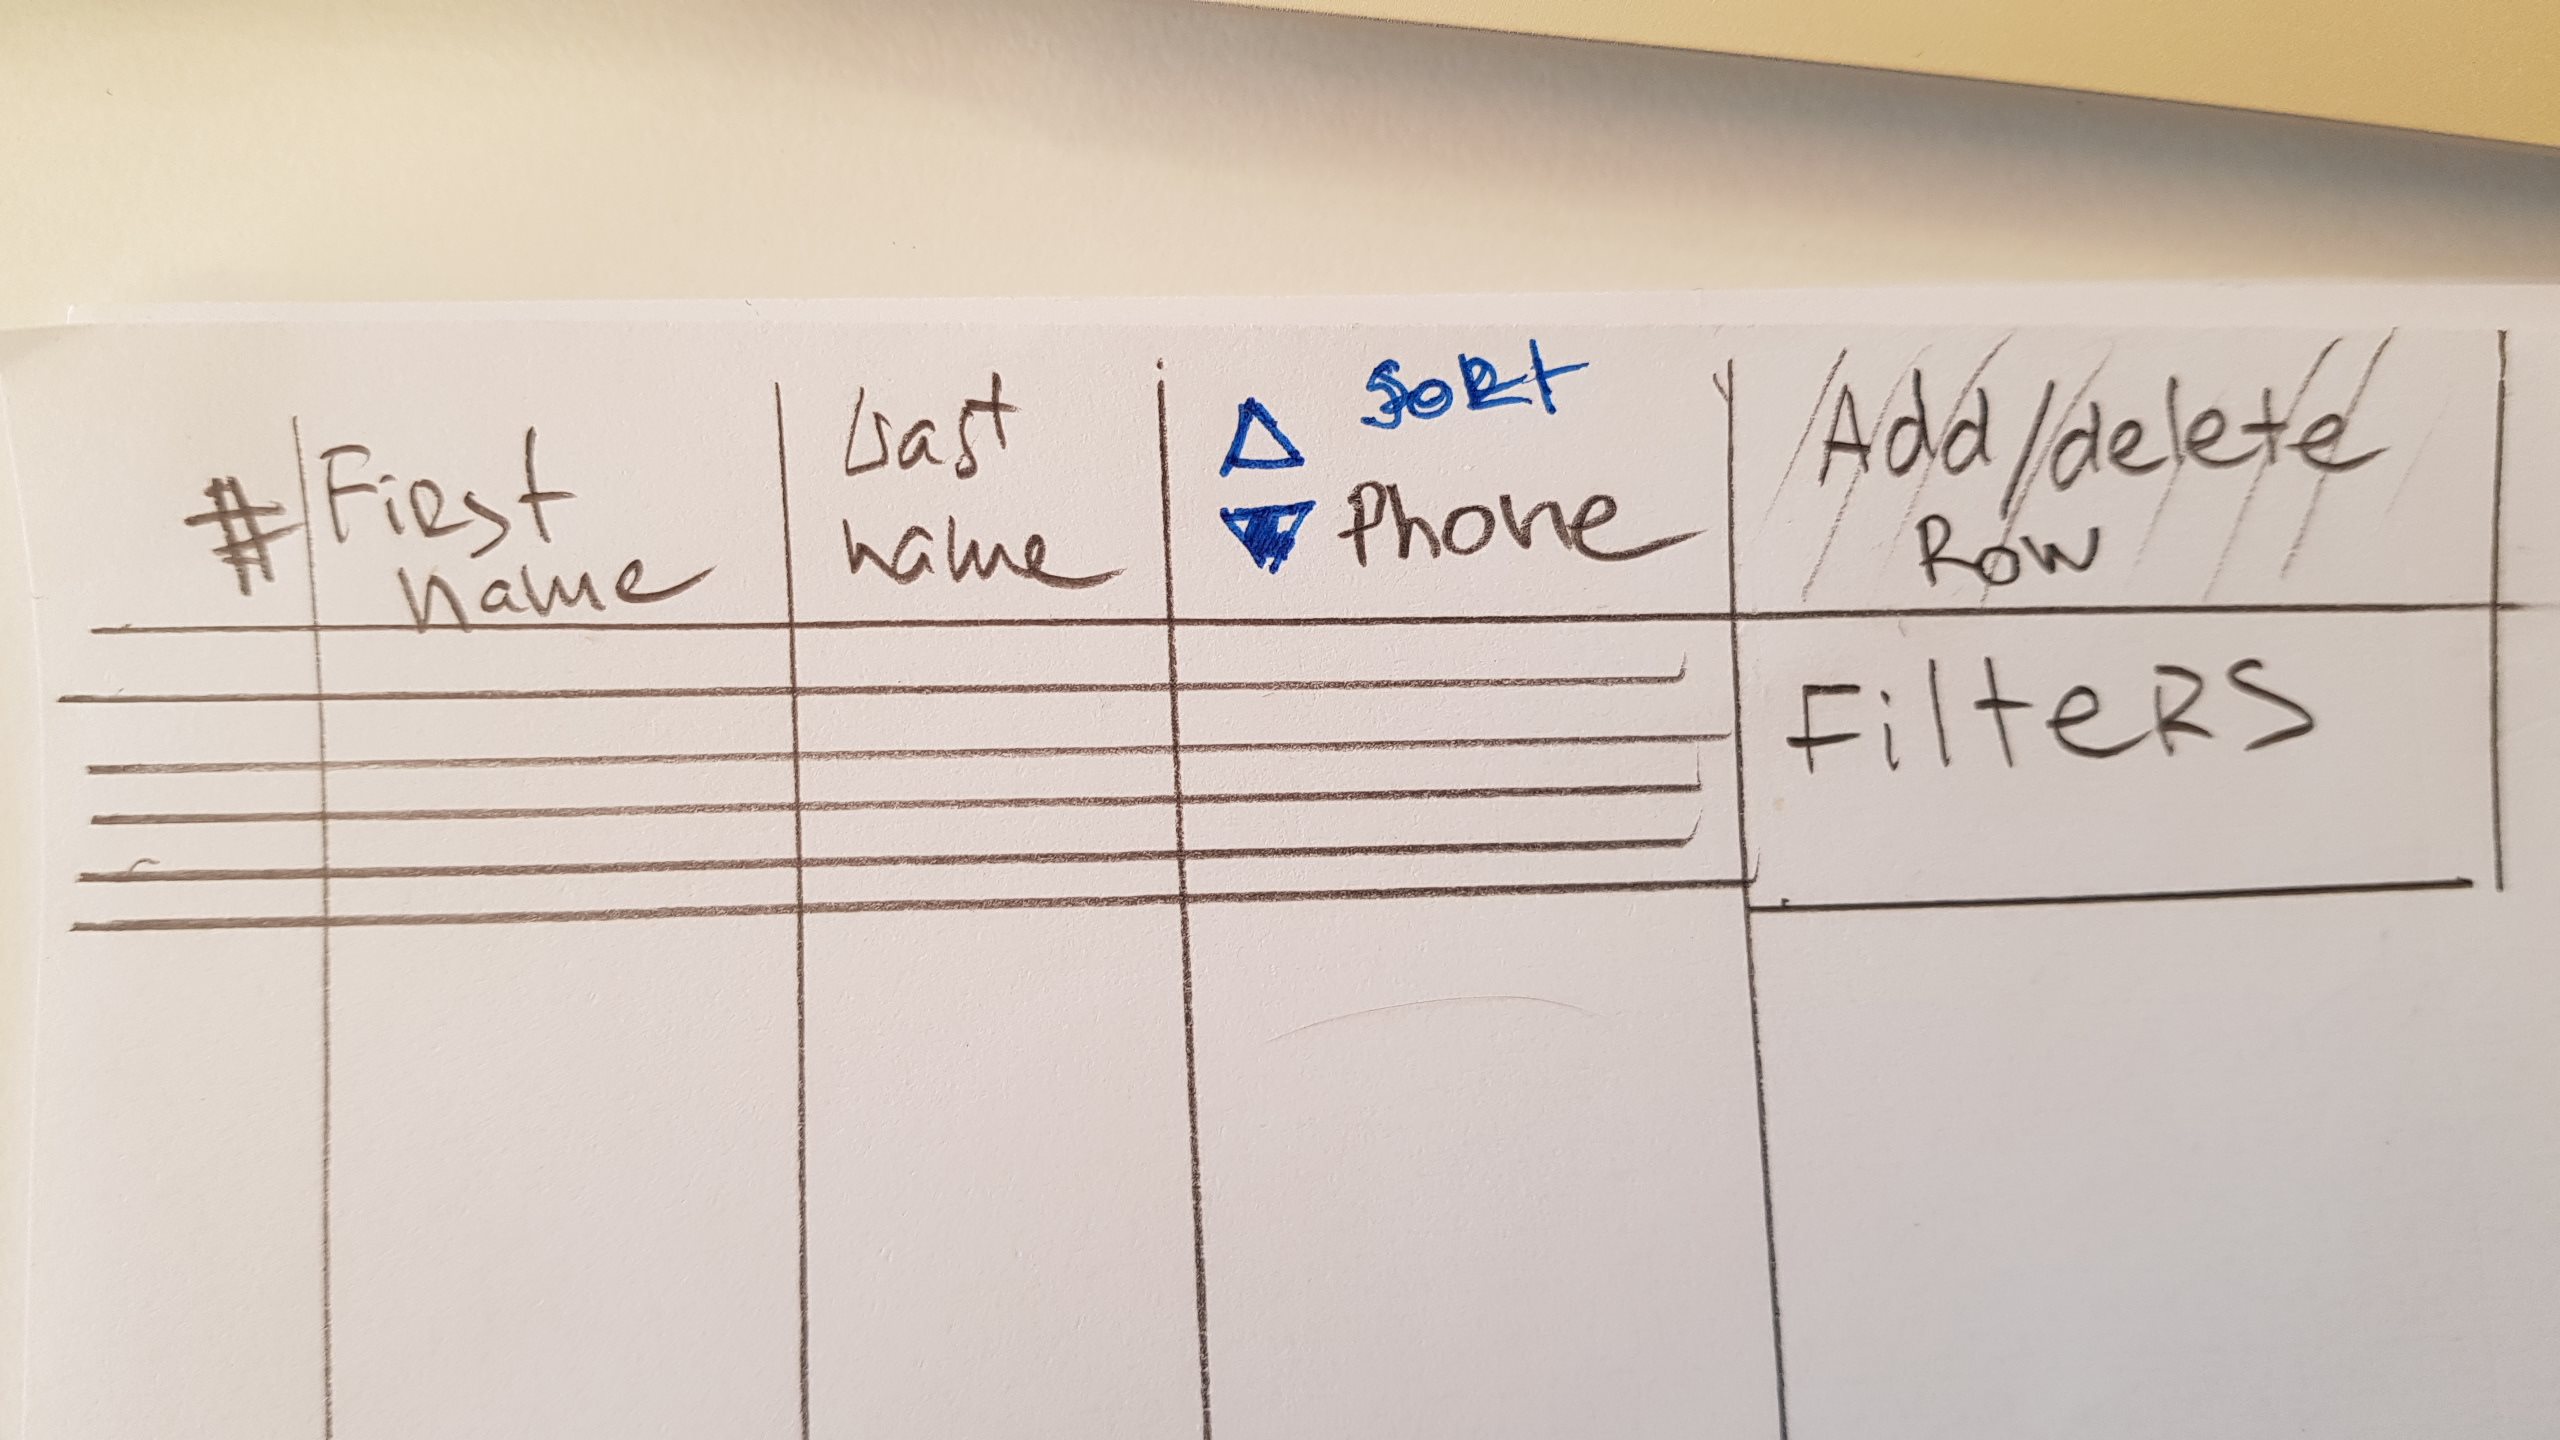 #
First
name
Last
name
Sort
Phone
Add/delete
Row
Filters